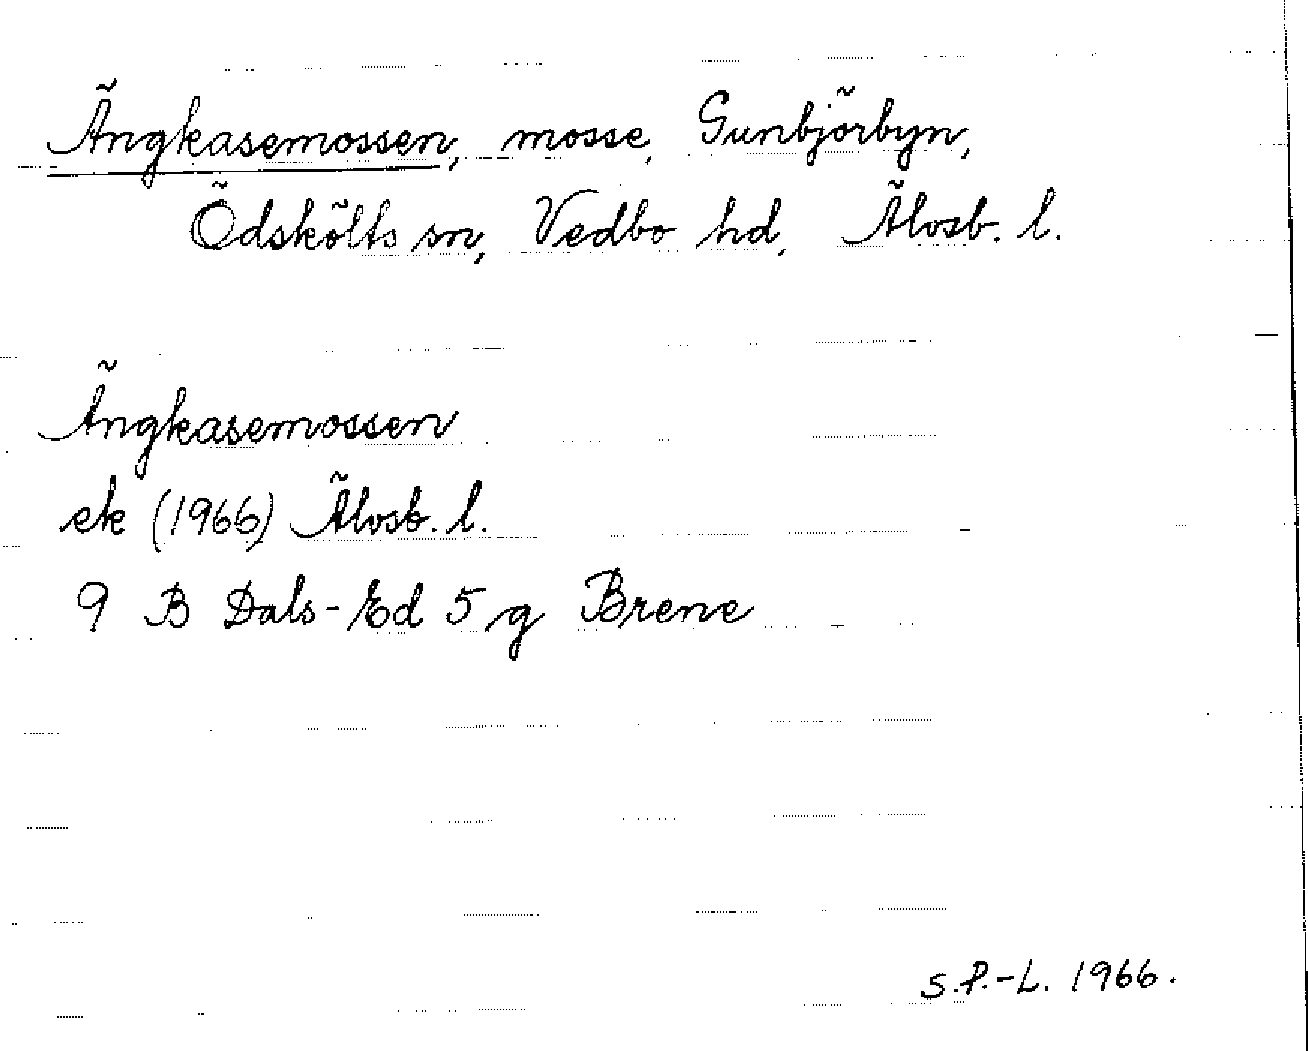 Ängkasemossen, mosse, Gunbjörbyn,
Ödskölts sn, Vedbo hd, Älvsb. l.
Ängkasemossen
ek (1966) Älvsb. l.
9 B Dals-Ed 5 g Brene
S.P.-L. 1966.